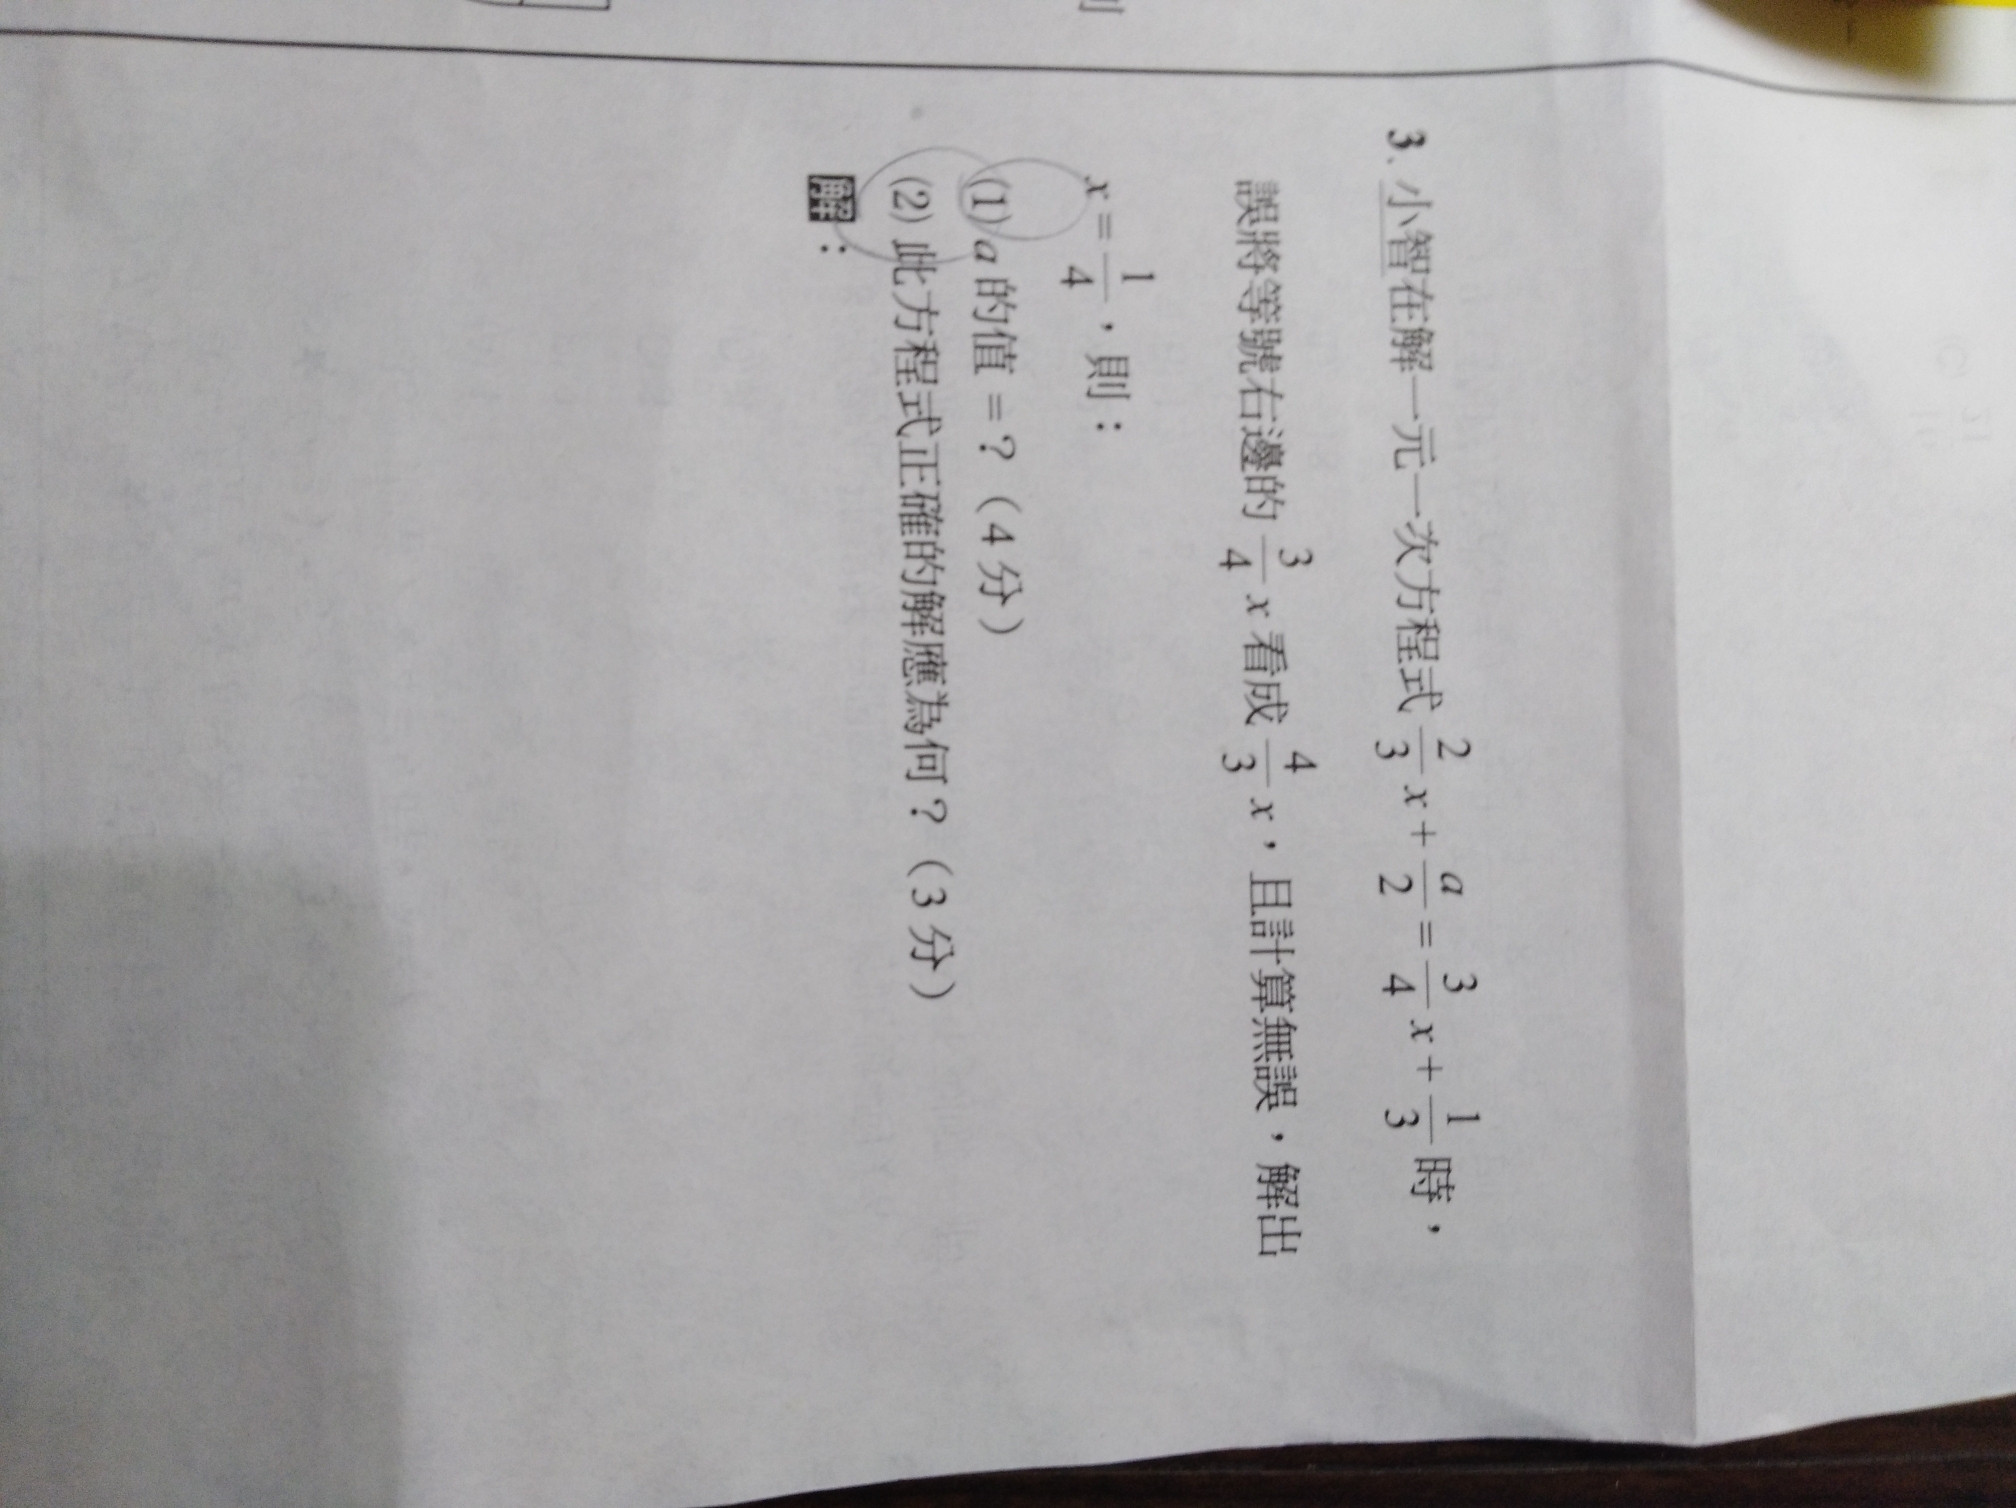 3. 小智在解一元一次方程式 2/3 x + a/2 = 3/4 x + 1/3 時，
誤將等號右邊的 3/4 x 看成 4/3 x，且計算無誤，解出
x = 1/4，則：
(1) a 的值 = ？（4 分）
(2) 此方程式正確的解應為何？（3 分）
解：